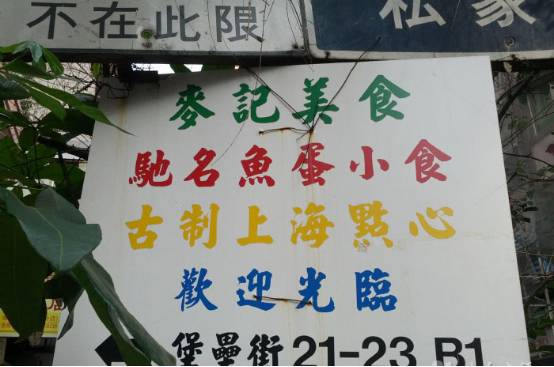 不在此限
私家
麥記美食
馳名魚蛋小食
古制上海點心
歡迎光臨
堡壘街21-23 B1